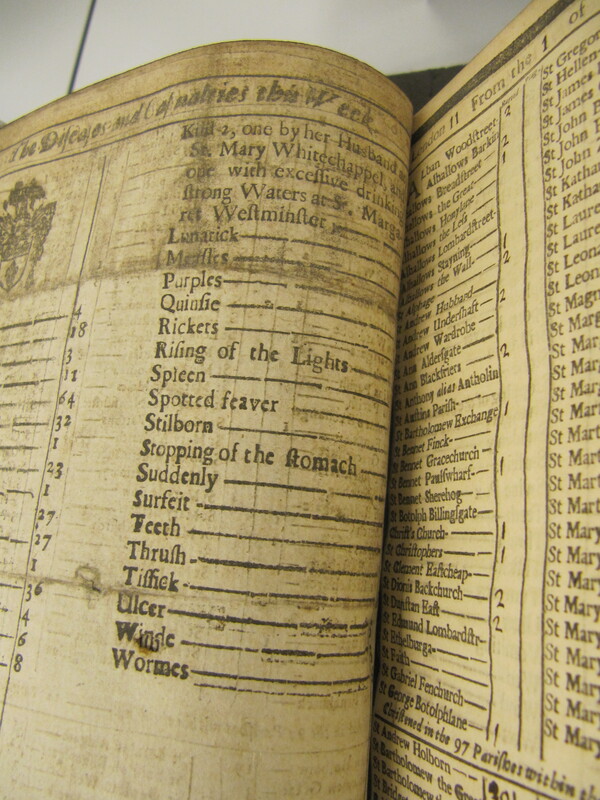 The Diseases and Casualties this Week.
4
18
3
11
64
32
1
23
1
27
27
1
36
4
6
8
Kill'd 2, one by her Husband
St. Mary Whitechappel, and
one with excessive drinking
strong Waters at St. Marga-
ret Westminster
Lunatick
Meazles
Purples
Quinsie
Rickets
Rising of the Lights
Spleen
Spotted feaver
Stilborn
Stopping of the stomach
Suddenly
Surfeit
Teeth
Thrush
Tissick
Ulcer
Winde
Wormes
11 From the 1 of
Alban Woodstreet 2
Alhallows Barkin 2
Breadstreet 1
the Great
Honylane
the Less
Lombardstreet
Stayning 1
the Wall 2
Alphage
Andrew Hubbard 2
Andrew Undershaft
Andrew Wardrobe
Ann Aldersgate 2
Ann Blackfriers
St Anthony alias Antholin
St Austins Parish
St Bartholomew Exchange 1
St Bennet Finck
St Bennet Gracechurch
St Bennet Paulswharf 1
St Bennet Sherehog
St Botolph Billingsgate
Christ's Church 1
St Christophers 1
St Clement Eastcheap
St Dionis Backchurch
St Dunstan East 2
St Edmund Lombardstr. 2
St Ethelburga
St Faith
St Gabriel Fenchurch
St George Botolphlane 1
Christned in the 97 Parishes within the
St Andrew Holborn
St Bartholomew the Great
St Bartholomew the
St Gregor
St Hellen
St James
St James
St John
St John
St John
St Kathar
St Katha
St Laure
St Laure
St Leona
St Leon
St Magn
St Marg
St Marg
St Marg
St Mar
St Mart
St Mart
St Mart
St Mart
St Mary
St Mary
St Mary
St Mary
St Mary
St Mary
St Mary
St Mary
St Mary